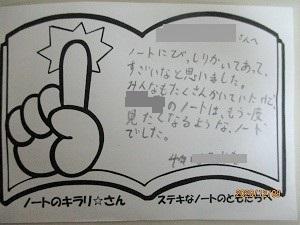 さんへ
ノートにびっしりかいてあって、
すごいなと思いました。
みんなもたくさんかいていたけど
のノートは、もう一度
見たくなるような、ノート
でした。
ノートのキラリ☆さん
ステキなノートのともだちへ